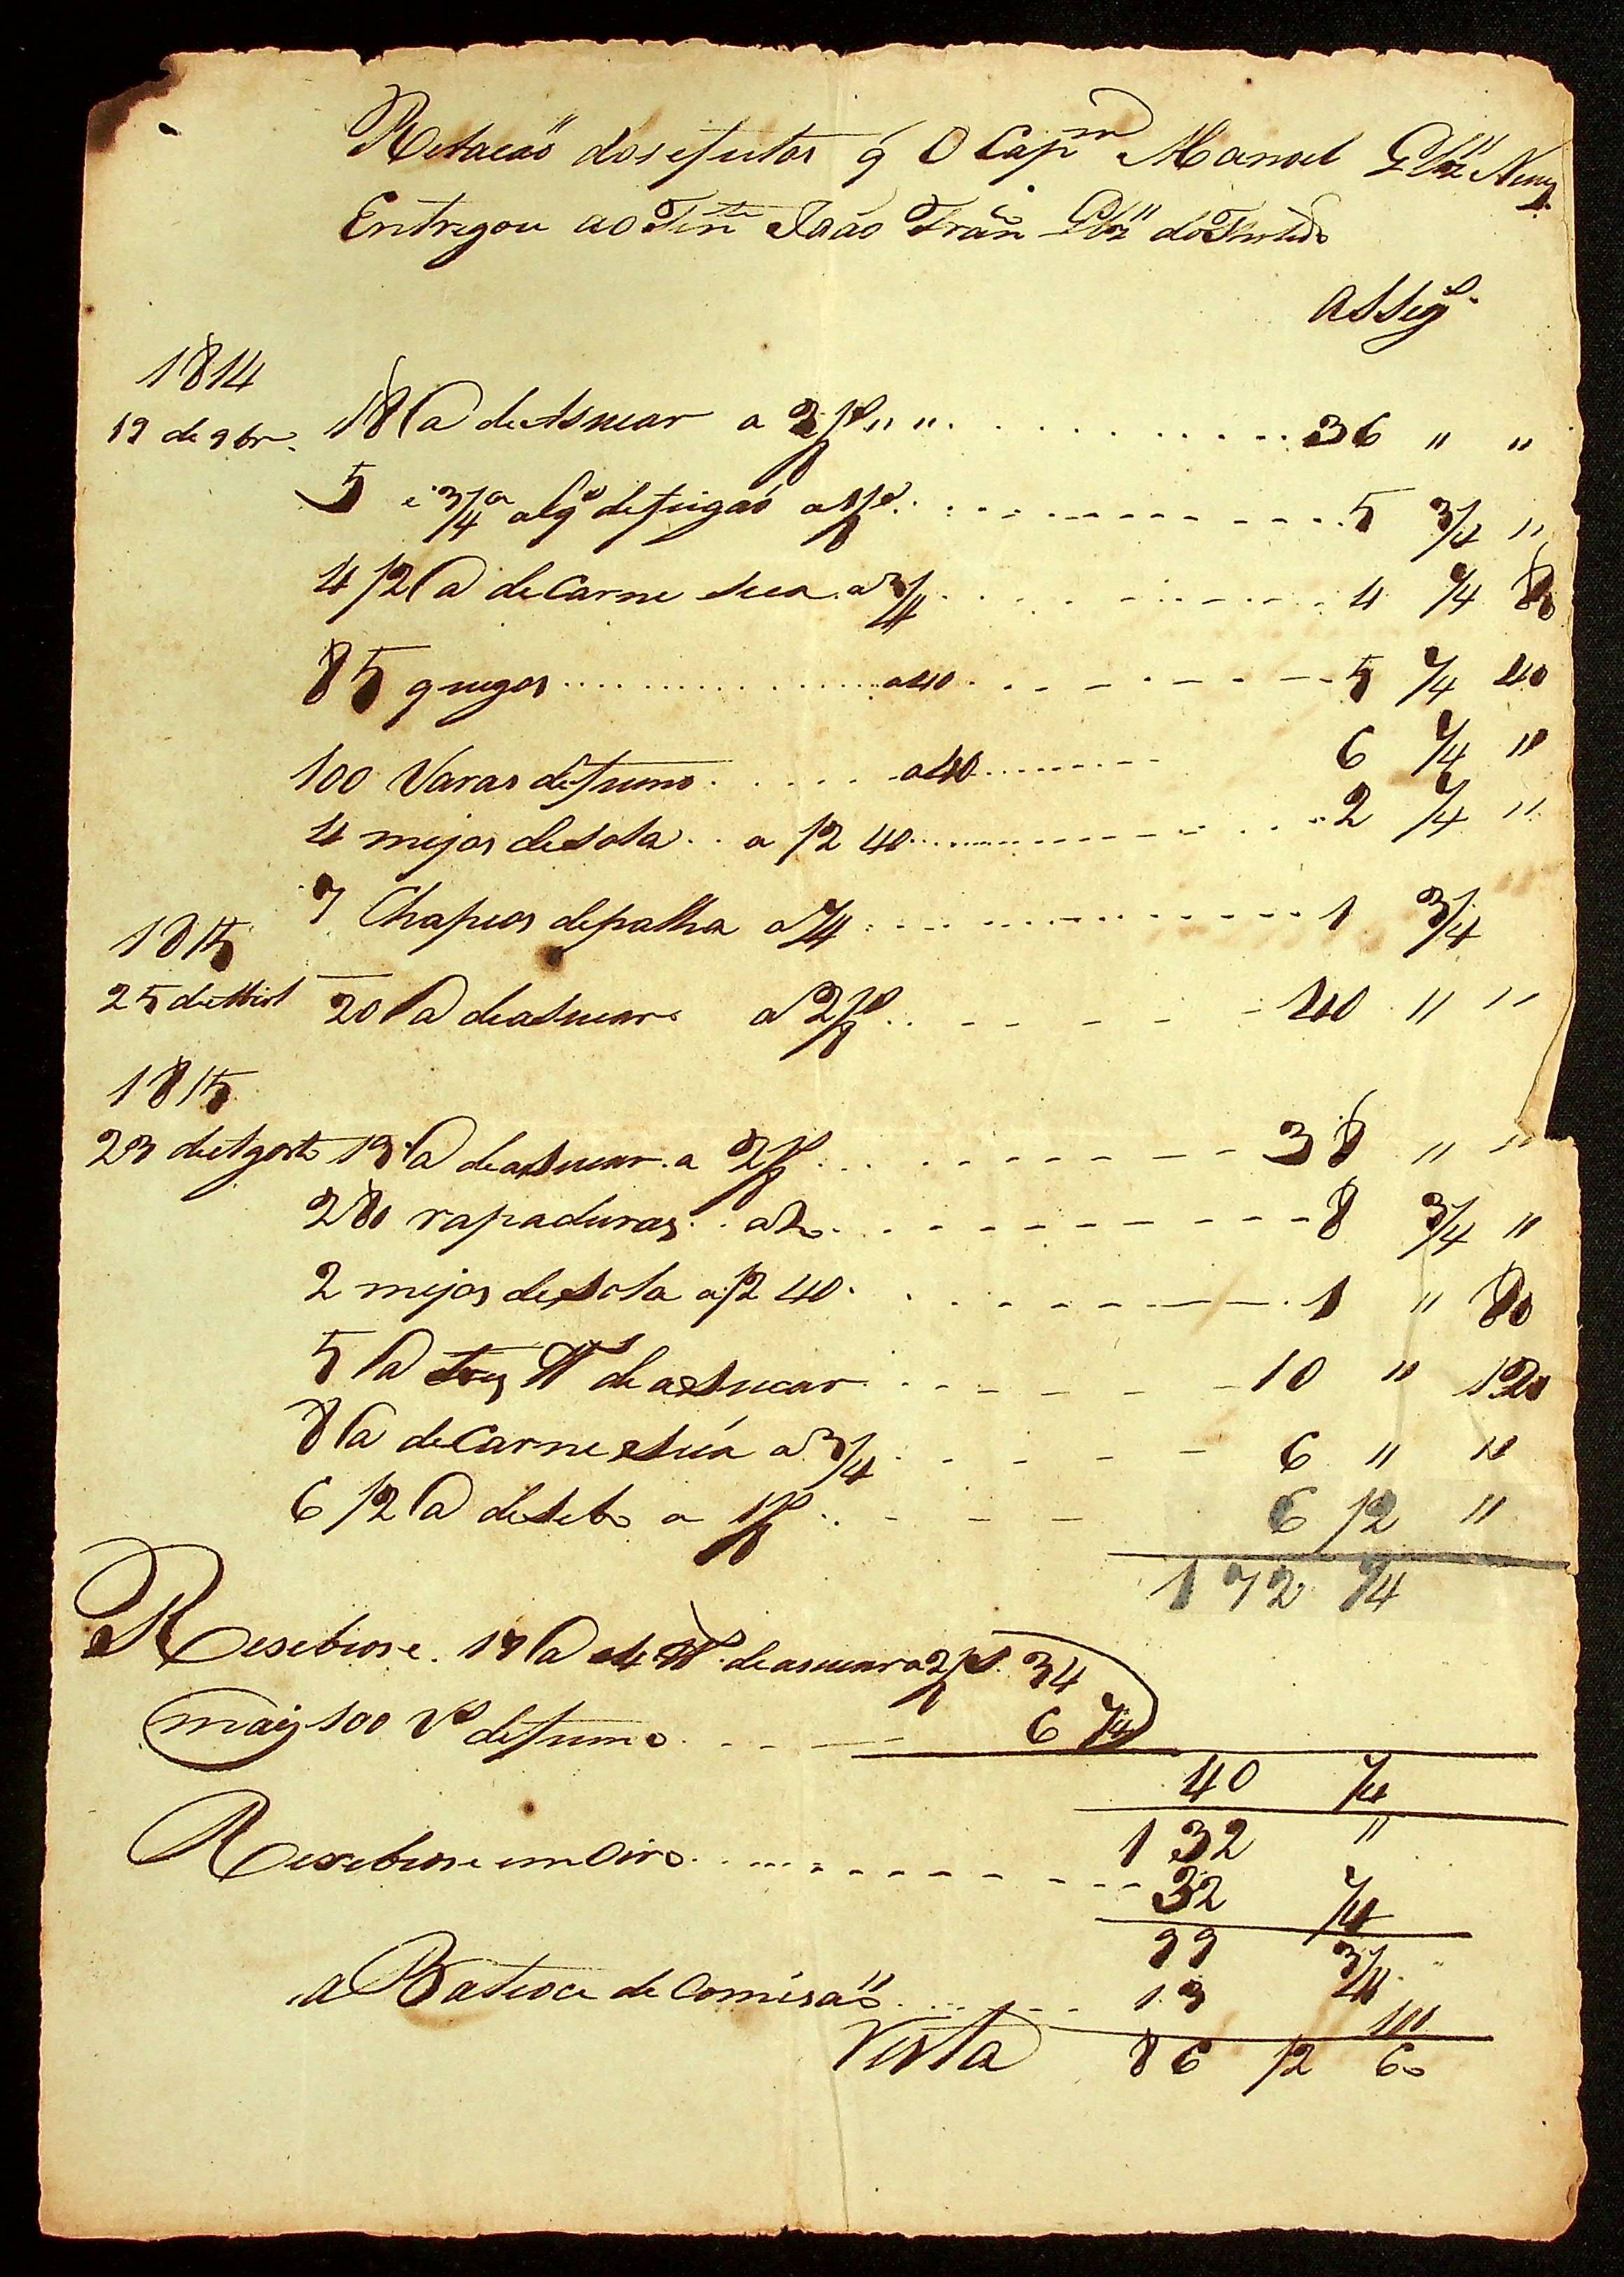 Relação dos efeitos q̃ O Capm Manoel Glz Nunz
Entregou ao Tente João Franco Glz do
asseg
1814
19 de 9br. 18 @ de Asucar a 2/8 " " 36 " "
5 e 3/4a alqs de feigaõ a 1/8 5 3/4 "
4 1/2 @ de Carne seca a 3/4 4 1/4 80
85 queigos a 40 5 1/4 40
100 Varas de fumo a 40 6 1/4 "
4 mejos de sola a 1/2 40 2 1/4 "
7 Chapeos de palha a 1/4 1 3/4
1815
25 de Abril 20 @ de asucar a 2/8 40 " "
1815
23 de Agosto 19 @ de asucar a 2/8 38 " "
280 rapaduras a 20 8 3/4 "
2 mejos de sola a 1/2 40 1 " 80
5 @ trez lb de asucar 10 " 120
8 @ de Carne seca a 3/4 6 " "
6 1/2 @ de sebo a 1/8 6 1/2 "
172 1/4
Resebiose 17 @ e 4 lb de asucar a 2/8 34
maiz 100 Vs de fumo 6 1/4
40 1/4
132 "
Resebiose em Oiro 32 1/4
99 3/4
a Batese de Comisaõ 13
Resta 86 1/2 60